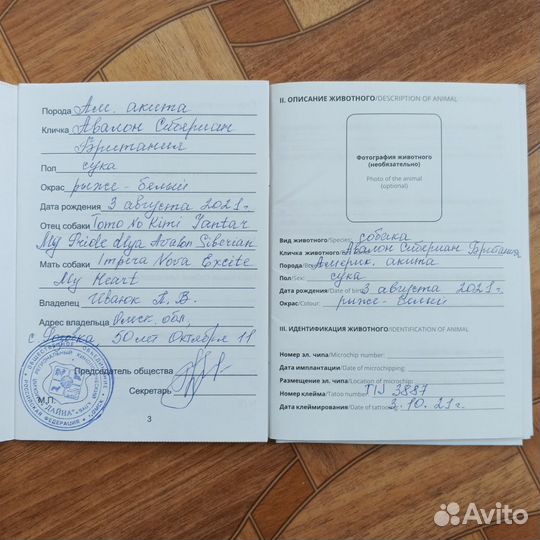 Порода Ам. акита
Кличка Авалон Сибериан
Британия
Пол сука
Окрас рыже-белый
Дата рождения 3 августа 2021г.
Отец собаки Tomo No Kimi Jantar
My Pride dlya Avalon Siberian
Мать собаки Impera Nova Excite
My Heart
Владелец Иванюк А. В.
Адрес владельца Омск. обл,
50 лет Октября 11
Председатель общества
Секретарь
М.П.
"ДАЙНА"
3
II. ОПИСАНИЕ ЖИВОТНОГО/DESCRIPTION OF ANIMAL
Фотография животного
(необязательно)
Photo of the animal
(optional)
Вид животного/Species: собака
Кличка животного/ Авалон Сибериан Британия
Порода/ Америк. акита
Пол/Sex: сука
Дата рождения/Date of birth 3 августа 2021г.
Окрас/Colour: рыже-белый
III. ИДЕНТИФИКАЦИЯ ЖИВОТНОГО/IDENTIFICATION OF ANIMAL
Номер эл. чипа/Microchip number:
Дата имплантации/Date of microchipping:
Размещение эл. чипа/Location of microchip:
Номер клейма/Tatoo number 3887
Дата клеймирования/Date of tatooing 3.10.21г.
Avito